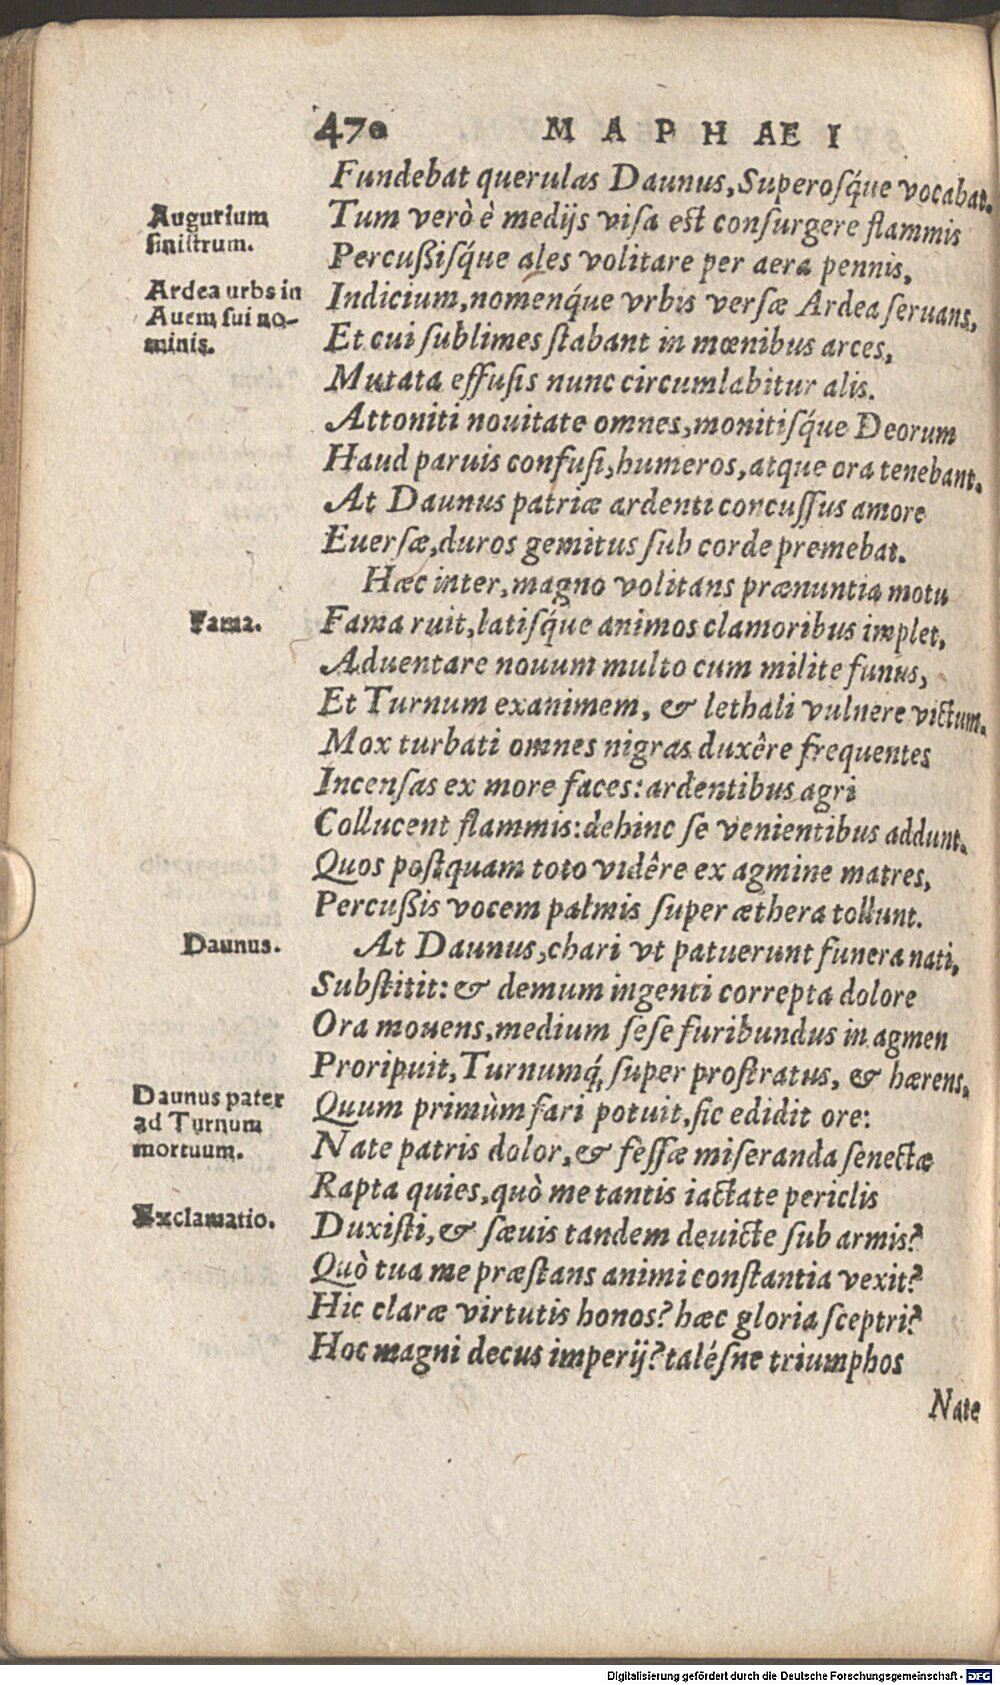 470 MAPHAEI
Fundebat querulas Daunus, Superosq́ue vocabat.
Augurium
sinistrum.
Tum verò è medijs visa est consurgere flammis
Percußisq́ue ales volitare per aera pennis,
Ardea urbs in
Auem sui no-
minis.
Indicium, nomenq́ue vrbis versæ Ardea seruans,
Et cui sublimes stabant in mœnibus arces,
Mutata effusis nunc circumlabitur alis.
Attoniti nouitate omnes, monitisq́ue Deorum
Haud paruis confusi, humeros, atque ora tenebant.
At Daunus patriæ ardenti concussus amore
Euersæ, duros gemitus sub corde premebat.
Hæc inter, magno volitans prænuntia motu
Fama.
Fama ruit, latisq́ue animos clamoribus implet,
Aduentare nouum multo cum milite funus,
Et Turnum exanimem, & lethali vulnere victum.
Mox turbati omnes nigras duxêre frequentes
Incensas ex more faces: ardentibus agri
Collucent flammis: dehinc se venientibus addunt.
Quos postquam toto vidêre ex agmine matres,
Percußis vocem palmis super æthera tollunt.
Daunus.
At Daunus, chari vt patuerunt funera nati,
Substitit: & demum ingenti correpta dolore
Ora mouens, medium sese furibundus in agmen
Proripuit, Turnumq́; super prostratus, & hærens,
Daunus pater
ad Turnum
mortuum.
Quum primùm fari potuit, sic edidit ore:
Nate patris dolor, & fessæ miseranda senectæ
Rapta quies, quò me tantis iactate periclis
Exclamatio.
Duxisti, & sæuis tandem deuicte sub armis?
Quò tua me præstans animi constantia vexit?
Hic claræ virtutis honos? hæc gloria sceptri?
Hoc magni decus imperij? talésne triumphos
Nate
Digitalisierung gefördert durch die Deutsche Forschungsgemeinschaft - DFG